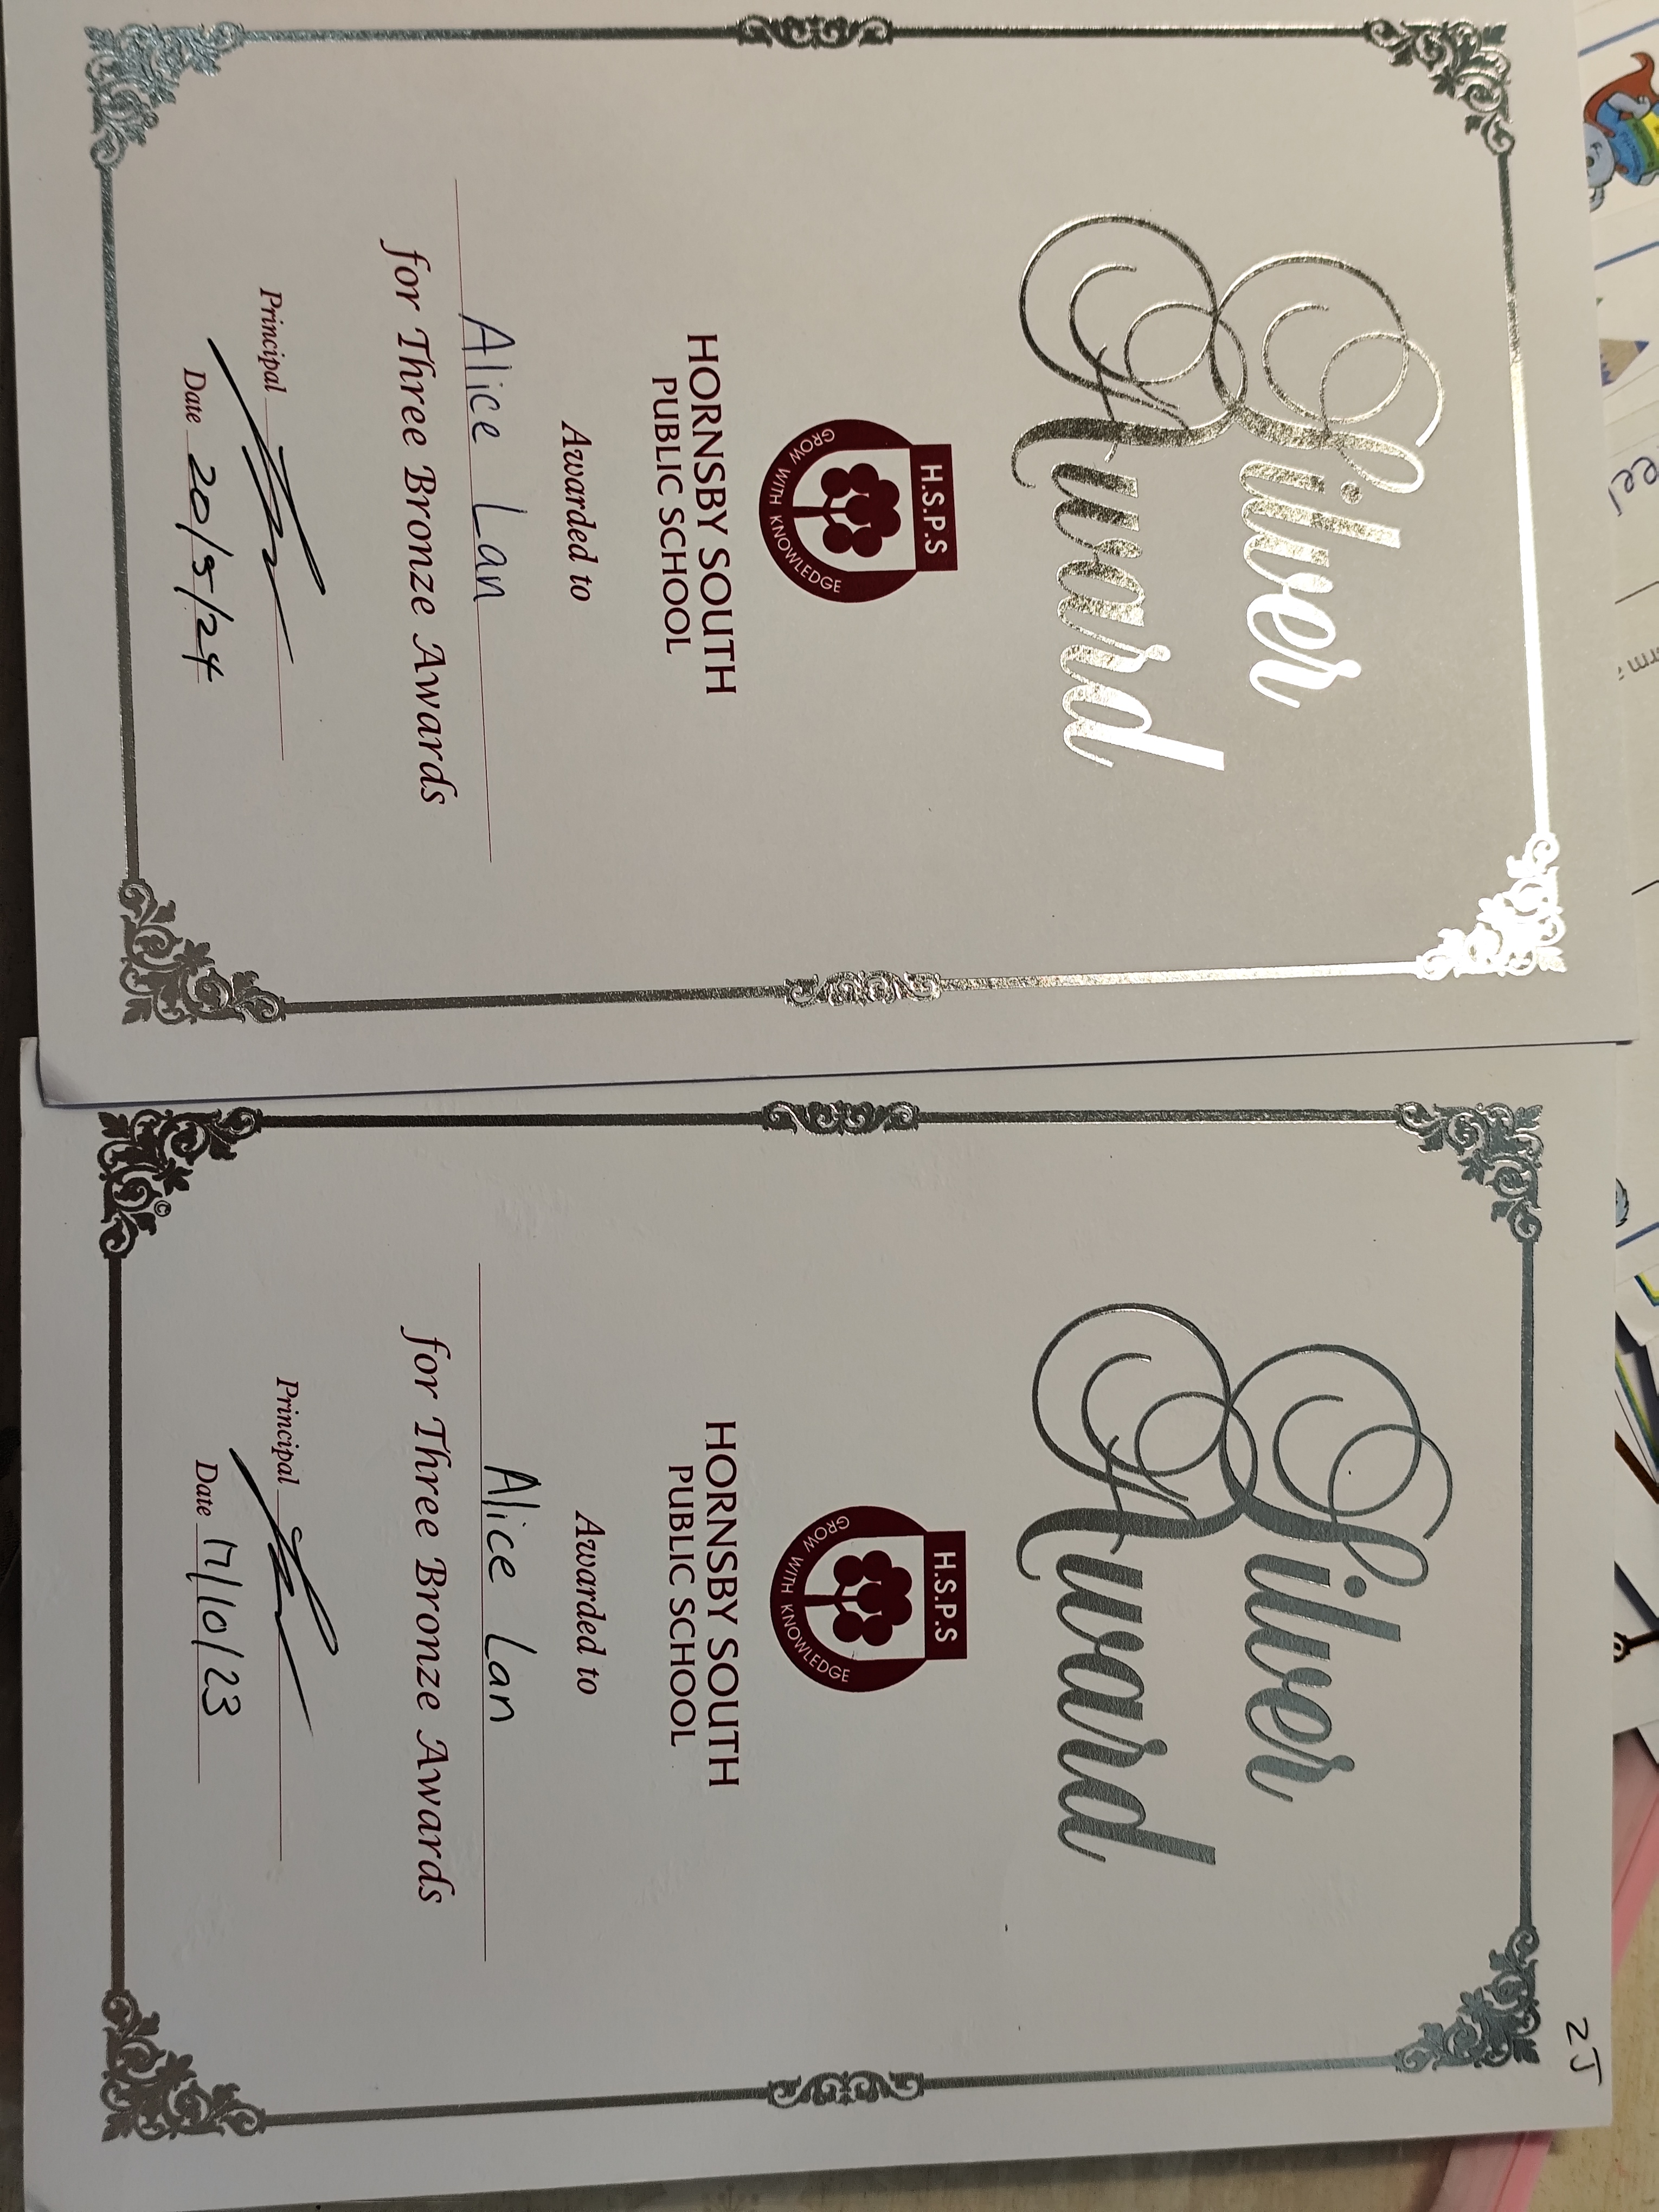 eel
Silver
Award
H.S.P.S
GROW WITH KNOWLEDGE
HORNSBY SOUTH
PUBLIC SCHOOL
Awarded to
Alice Lan
for Three Bronze Awards
Principal
Date 20/5/24
2J
Silver
Award
H.S.P.S
GROW WITH KNOWLEDGE
HORNSBY SOUTH
PUBLIC SCHOOL
Awarded to
Alice Lan
for Three Bronze Awards
Principal
Date 17/10/23
©